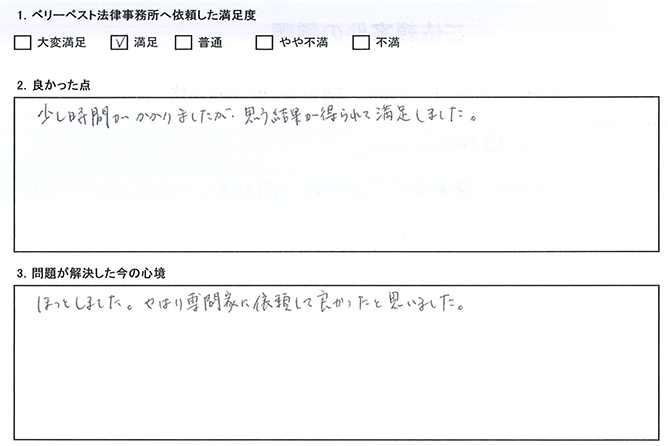 1. ベリーベスト法律事務所へ依頼した満足度
□ 大変満足 ☑ 満足 □ 普通 □ やや不満 □ 不満
2. 良かった点
少し時間がかかりましたが、思う結果が得られて満足しました。
3. 問題が解決した今の心境
ほっとしました。やはり専門家に依頼して良かったと思いました。